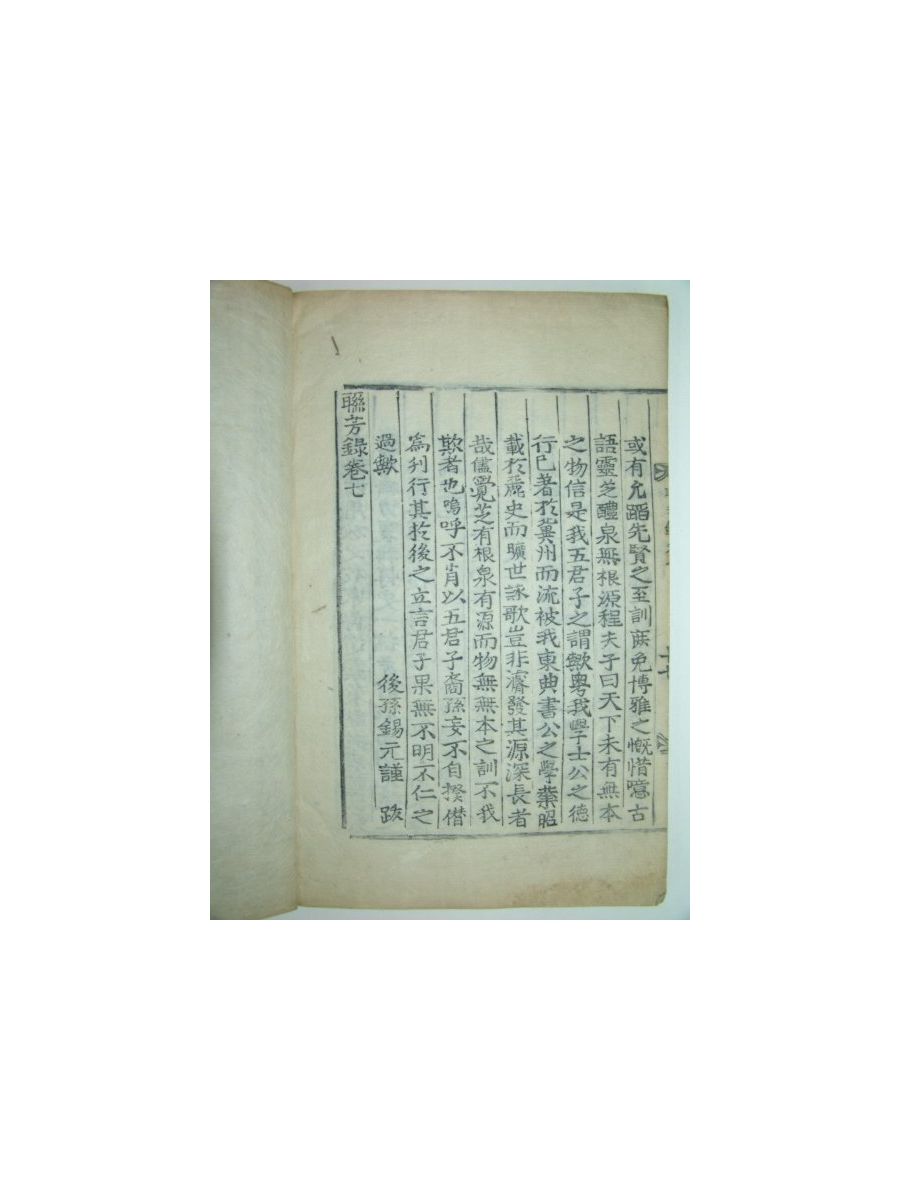 或有允蹈先賢之至訓庶免博雅之慨惜噫古
語靈芝醴泉無根源程夫子曰天下未有無本
之物信是我五君子之謂歟粤我學士公之德
行已著於冀州而流被我東典書公之學業昭
載於麗史而曠世詠歌豈非濬發其源深長者
哉儘覺芝有根泉有源而物無無本之訓不我
欺者也嗚呼不肖以五君子裔孫妄不自揆僭
為刊行其於後之立言君子果無不明不仁之
過歟
後孫錫元謹 跋
聯芳錄卷七